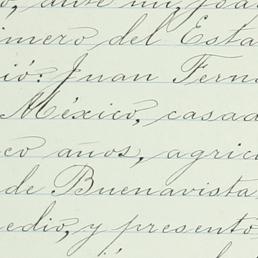 o, ante mí, José
imero del Esta
ió: Juan Fern
México, casad
co años, agricu
de Buenavista,
edio, y presento,